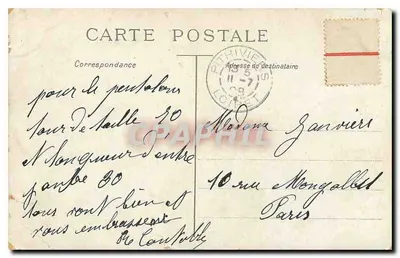 CARTE POSTALE
Correspondance
Adresse du destinataire
PITHIVIERS
11-7
08
LOIRET
pour le pantalon
tour de taille 90
longueur d'entre
jambe 80
tous vont bien et
vous embrassent
Madame Janviers
10 rue Mongallet
Paris
CPAPHIL